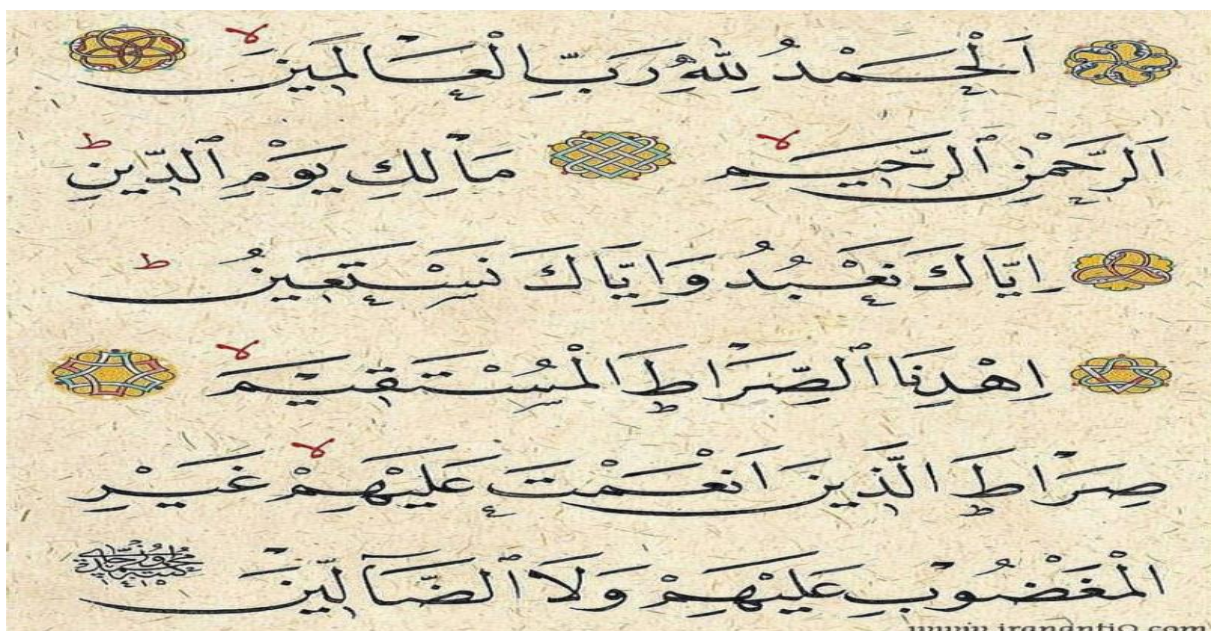 اَلْحَمْدُ لِلّٰهِ رَبِّ الْعَالَمِينَ ۙ
اَلرَّحْمٰنِ ٱلرَّحِيمِ ۙ مَالِكِ يَوْمِ ٱلدِّينِ ۜؕ
اِيَّاكَ نَعْبُدُ وَاِيَّاكَ نَسْتَعِينُ ؕ
اِهْدِنَا ٱلصِّرَاطَ الْمُسْتَقِيمَ ۙ
صِرَاطَ الَّذِينَ اَنْعَمْتَ عَلَيْهِمْ ۙ غَيْرِ
الْمَغْضُوبِ عَلَيْهِمْ وَلَا ٱلضَّالِّينَ
www.irantiQ.com